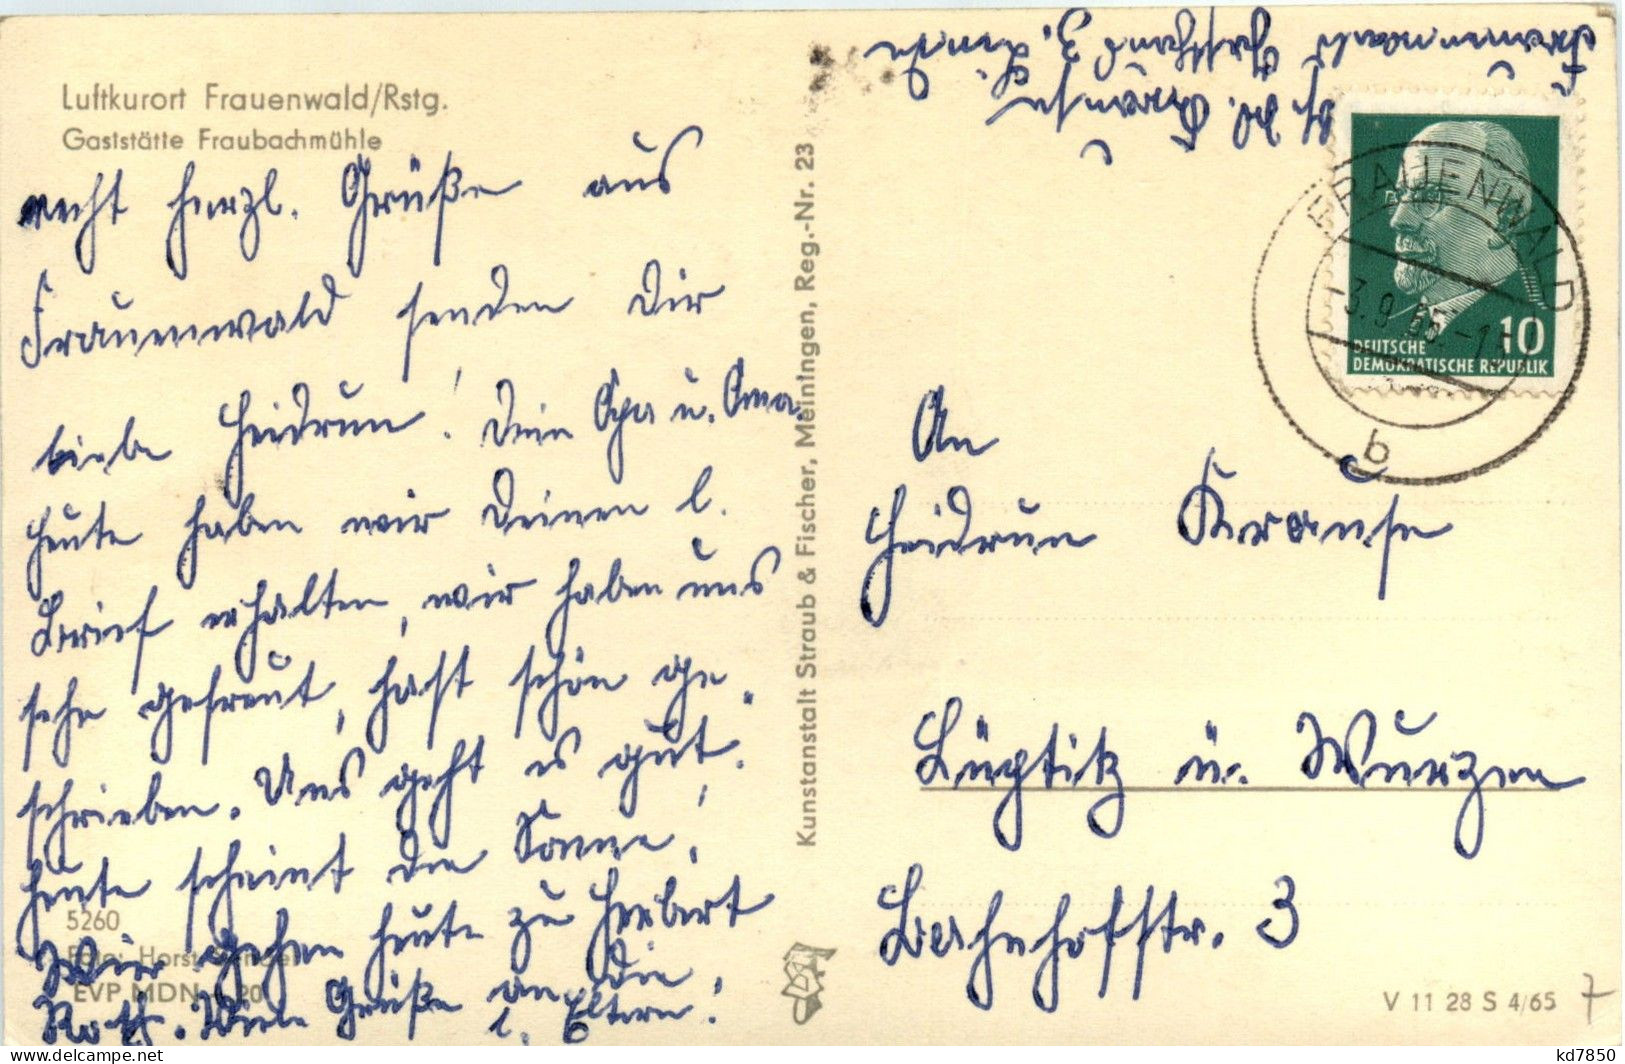 Luftkurort Frauenwald/Rstg.
Gaststätte Fraubachmühle
recht herzl. Grüße aus
Frauenwald senden Dir
liebe Heidrun! Dein Opa u. Oma.
heute haben wir Deinen l.
Brief erhalten, wir haben uns
sehr gefreut, hast schön ge-
schrieben. Uns geht es gut.
heute scheint die Sonne,
Wir gehen heute zu Herbert
Roth. Viele Grüße an die
l. Eltern!
5260
Foto: Horst
EVP MDN 0,20
Kunstanstalt Straub & Fischer, Meiningen, Reg.-Nr. 23
Krause
Frauenwald
FRAUENWALD
3.9.65
b
10
DEUTSCHE
DEMOKRATISCHE REPUBLIK
An
Heidrun Krause
Lüptitz ü. Wurzen
Bahnhofstr. 3
V 11 28 S 4/65
7
kd7850